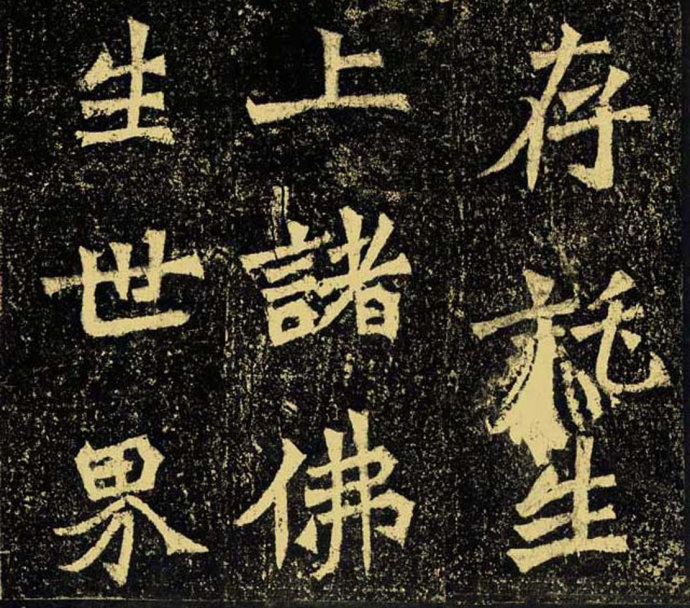 存託生
上諸佛
生世界